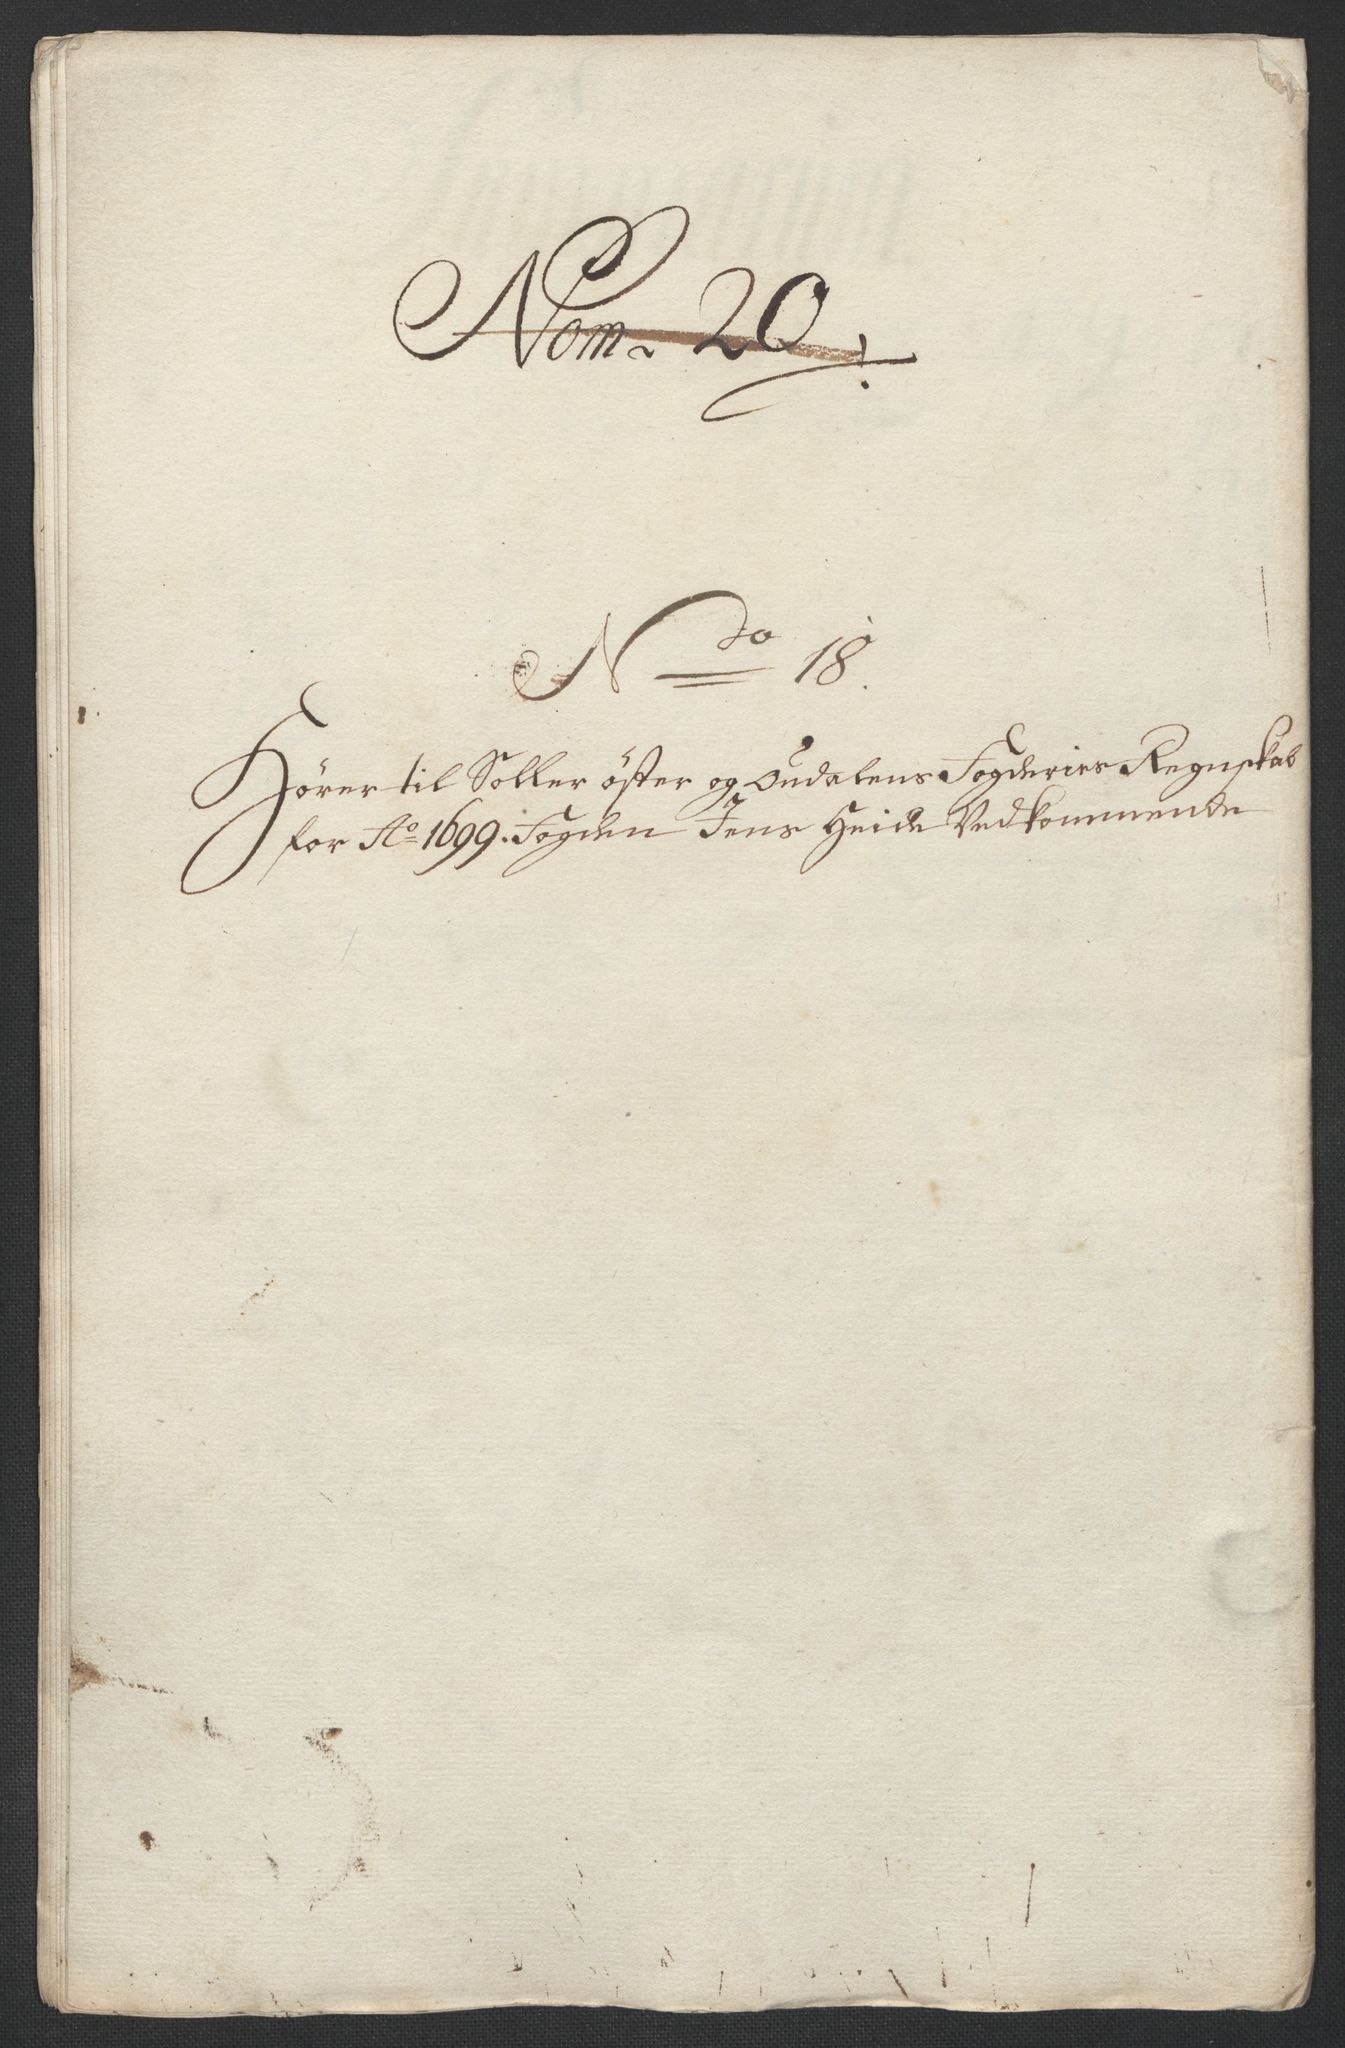 Nom. 20
No 18.
Hörer til Soller öster og Oudalens Fogderies Regnskab
for Ao 1699. Fogden Jens Heide Vedkommende